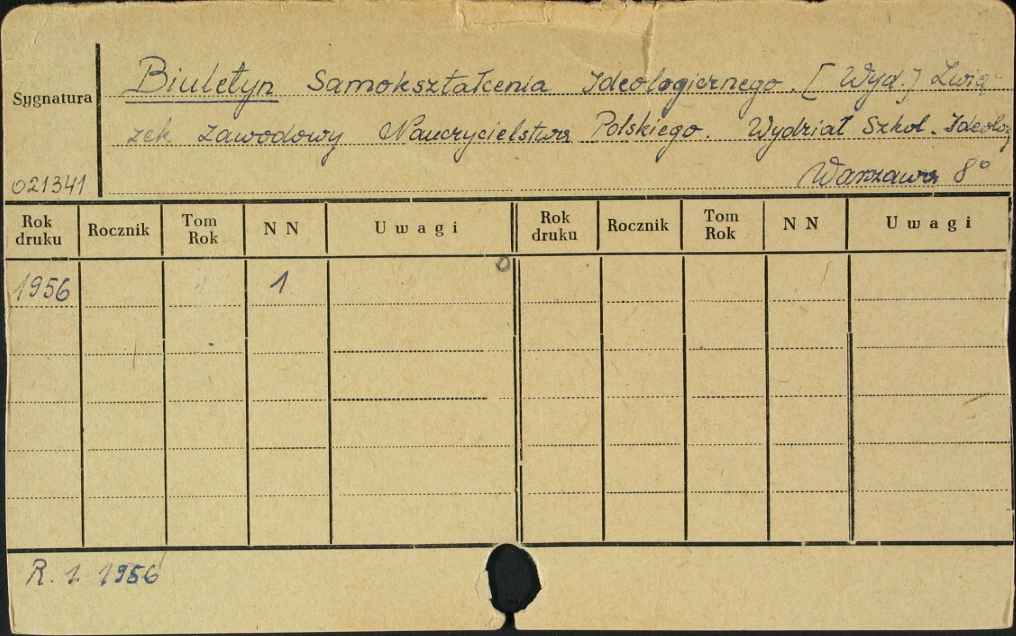 Biuletyn Samokształcenia Ideologicznego. [Wyd.] Zwią-
Sygnatura
zek Zawodowy Nauczycielstwa Polskiego. Wydział Szkol. Ideolog
021341 Warszawa 8°
Rok druku Rocznik Tom Rok N N Uwagi Rok druku Rocznik Tom Rok N N Uwagi
1956 1
R. 1. 1956